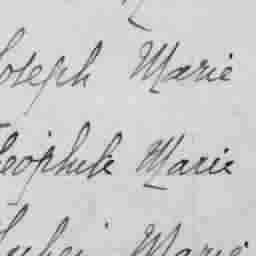 Joseph Marie
Théophile Marie
Marie